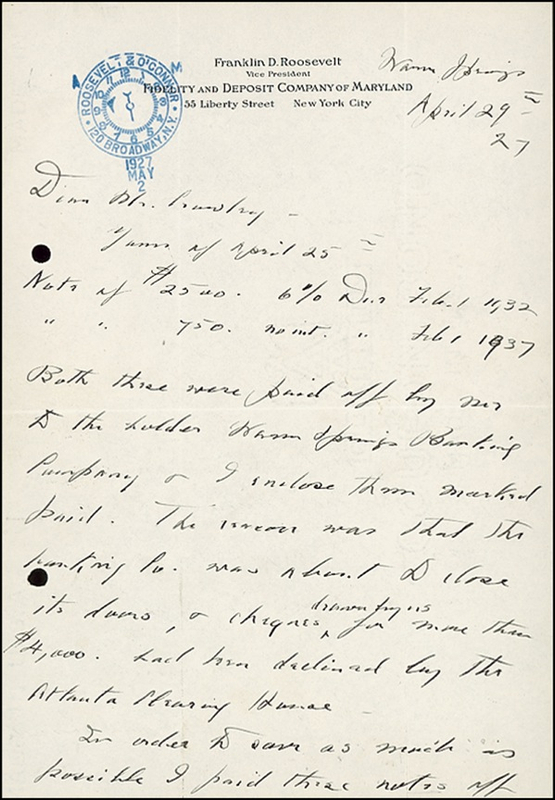 Franklin D. Roosevelt
Vice President
Fidelity and Deposit Company of Maryland
55 Liberty Street New York City
ROOSEVELT & O'CONNOR
120 BROADWAY, N.Y.
A M
12 1 2 3 4 5 6 7 8 9 10 11
1927
MAY
2
Warm Springs
April 29th
27
Dear Mr.
Yours of April 25th
Note of $2500. 6% Due Feb. 1 1932
" " 750. no int. " Feb 1 1937
Both these were paid off by me
to the holder Warm Springs Banking
Company & I enclose them marked
paid. The reason was that the
banking Co. was about to close
its doors, & cheques drawn by us for more than
$4,000. had been declined by the
Atlanta Clearing House
In order to save as much as
possible I paid these notes off